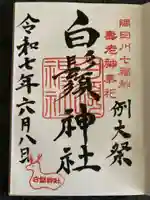 隅田川七福神
壽老神東北
例大祭
白鬚神社
令和七年六月八日
白鬚神社